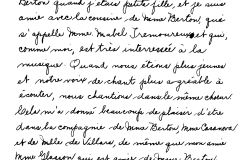 Berton quand j'étais petite fille, et je suis
amie avec la cousine de Mme Berton, qui
s'appelle Mme Mabel Tremoureux et qui,
comme moi, est très interessée à la
musique. Quand nous étions plus jeunes
et notre voix de chant plus agréable à
écouter, nous chantions dans le même choeur.
Cela m'a donné beaucoup de plaisir d'être
dans la compagnie de Mme Berton, Mme Casanova
et de Mlle de Villars, de même que mon amie
Mme Glasson qui est amie de Mme Berton